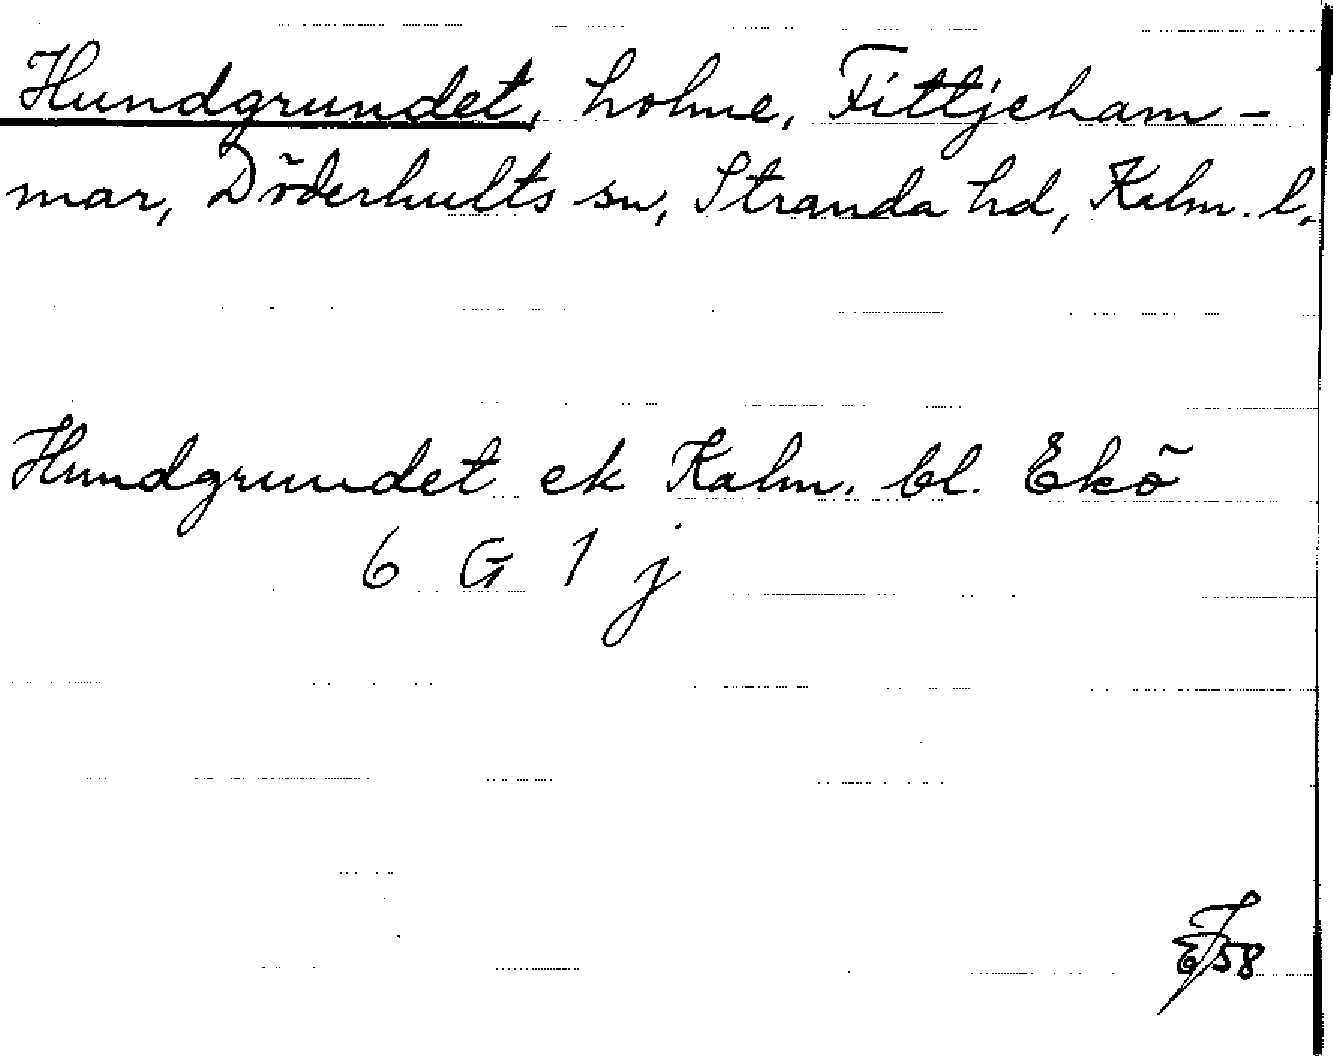 Hundgrundet, holme, Fittjeham-
mar, Döderhults sn, Stranda hd, Kalm. l.
Hundgrundet ek Kalm. bl. Ekö
6 G 1 j
58